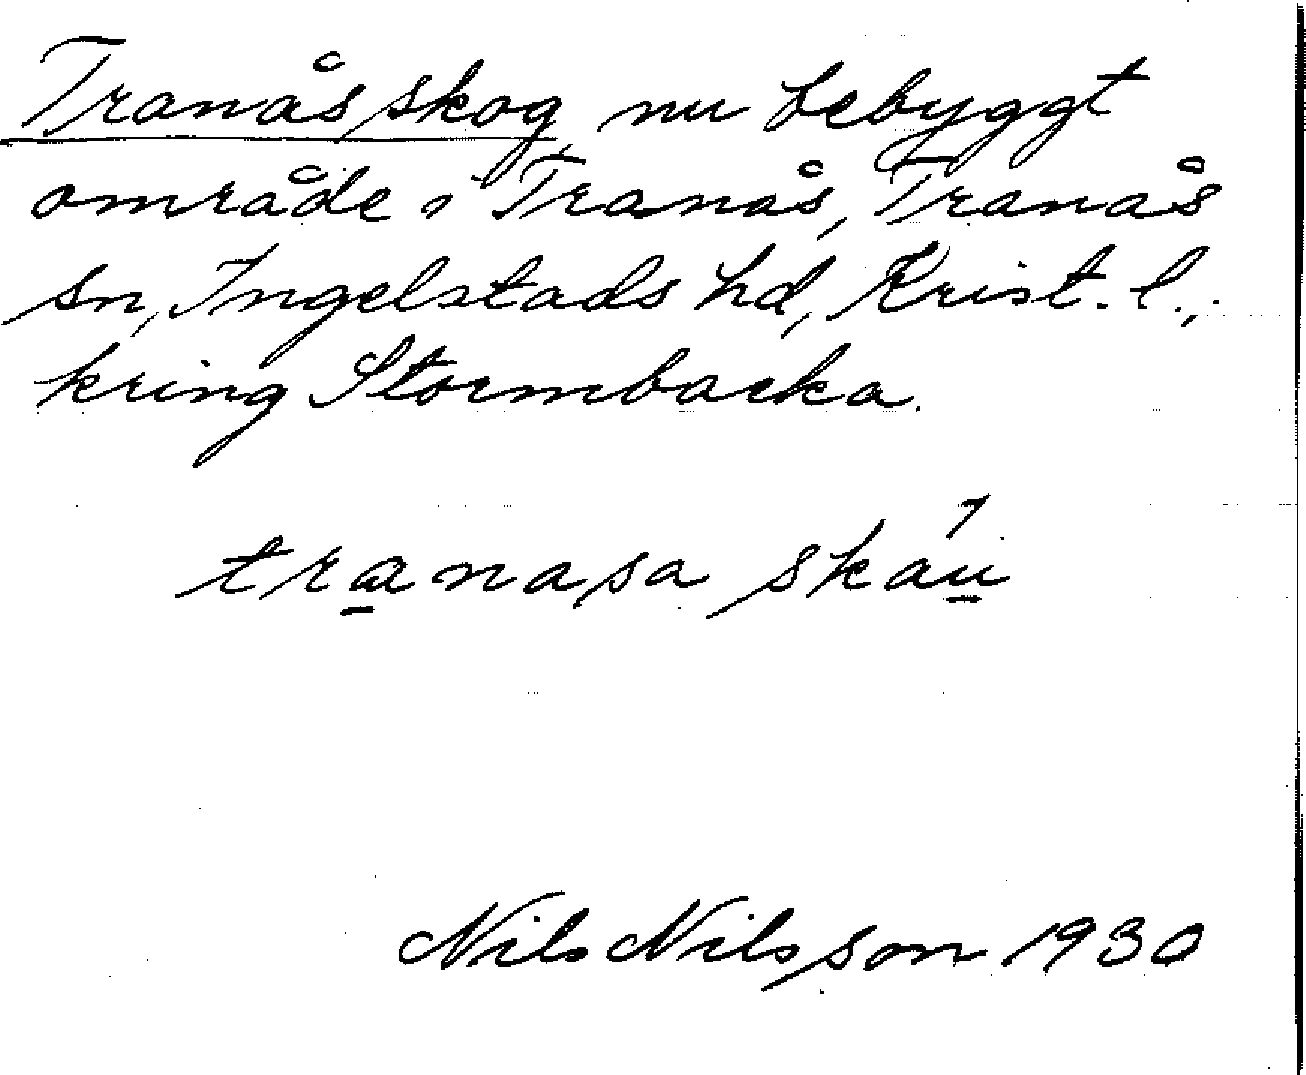 Tranåsskog, nu bebyggt
område i Tranås, Tranås
sn, Ingelstads hd, Krist. l.,
kring Stormbacka.
tra̱nasa skáu̱
Nils Nilsson 1930